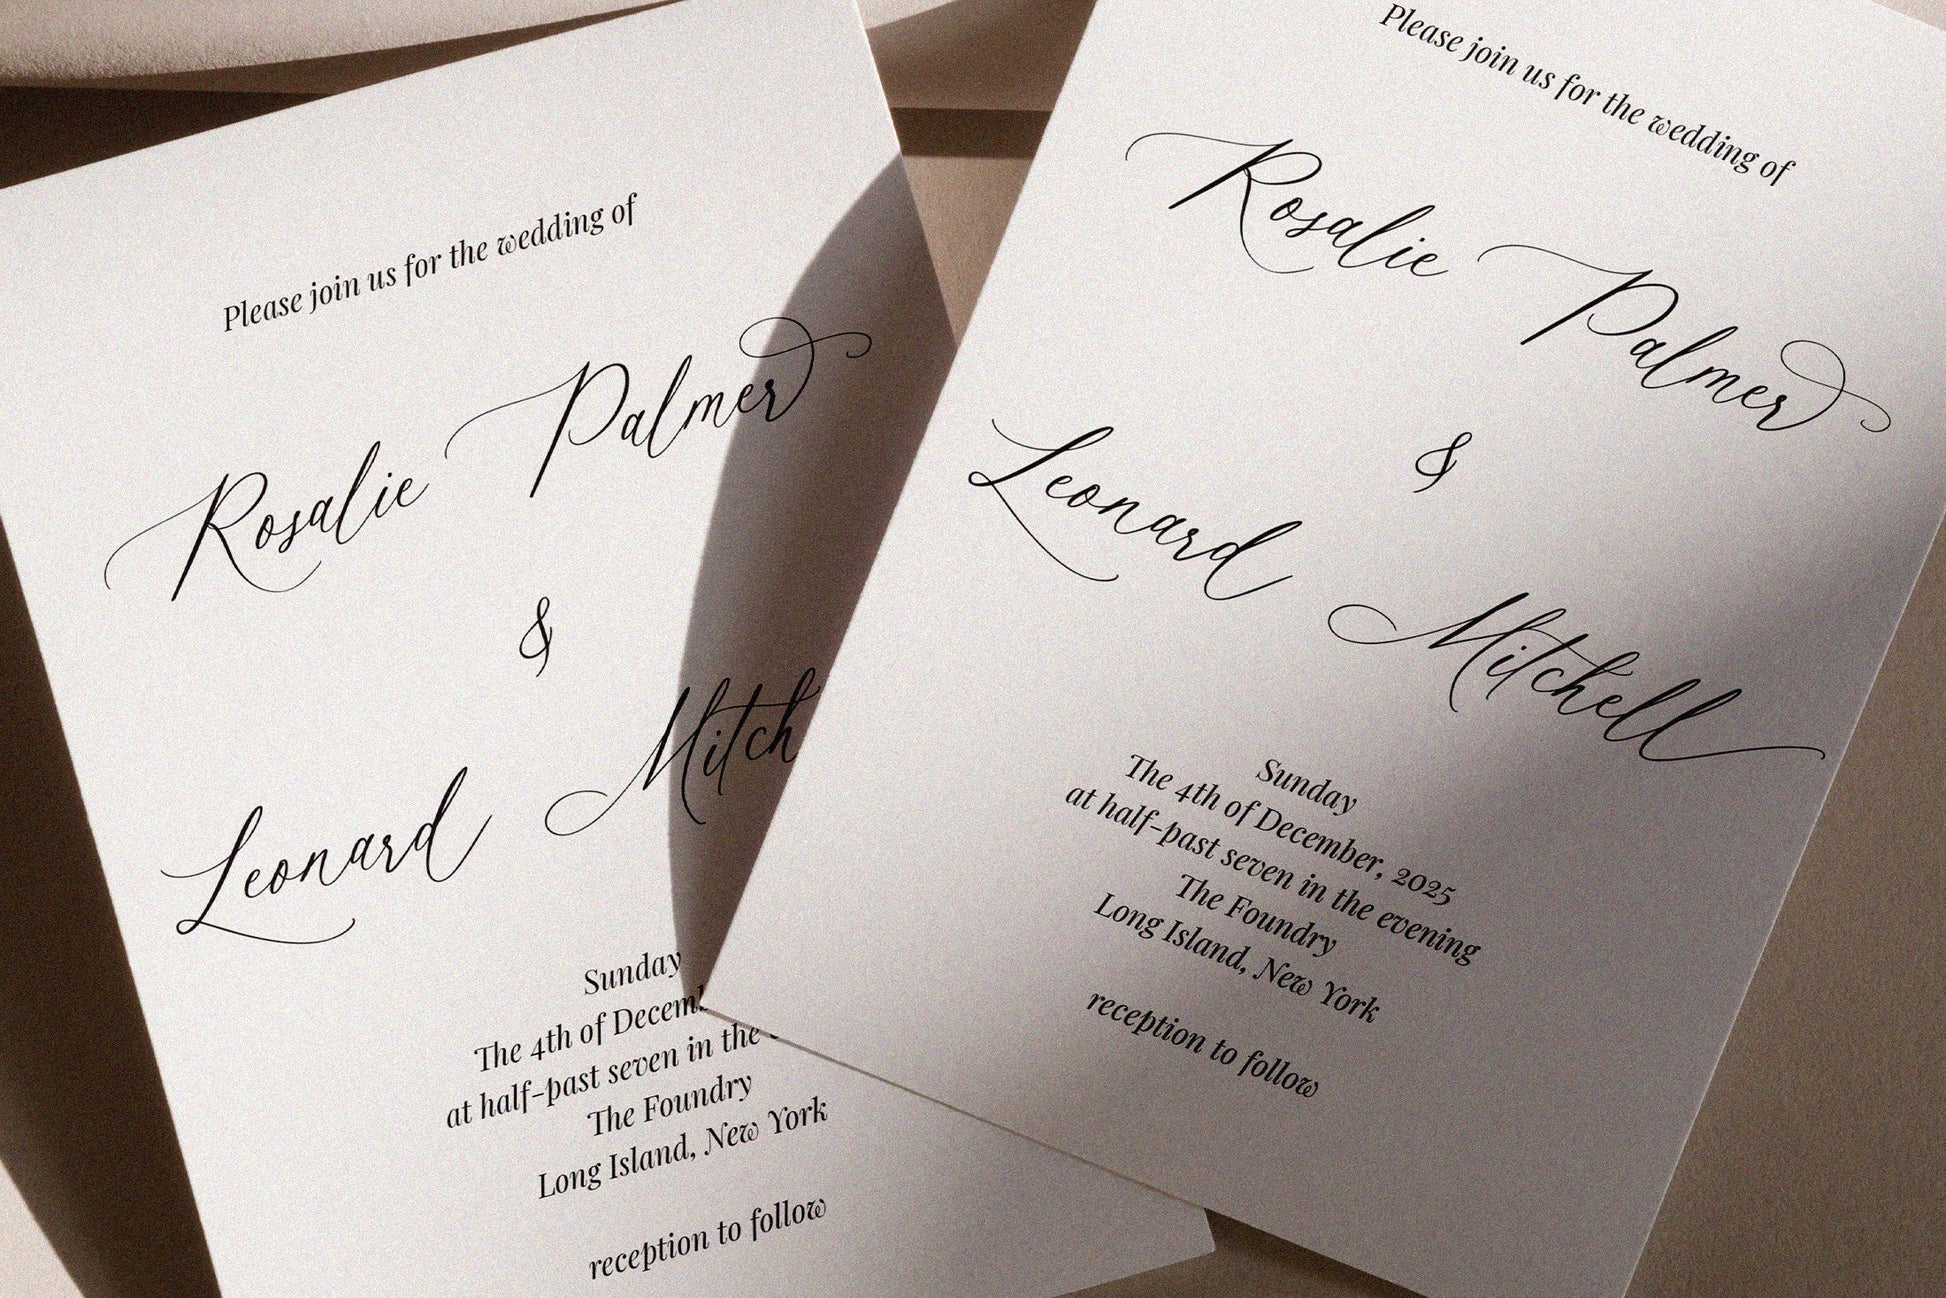 Please join us for the wedding of
Rosalie Palmer
&
Leonard Mitch
Sunday
The 4th of Decem
at half-past seven in the
The Foundry
Long Island, New York
reception to follow
Please join us for the wedding of
Rosalie Palmer
&
Leonard Mitchell
Sunday
The 4th of December, 2025
at half-past seven in the evening
The Foundry
Long Island, New York
reception to follow